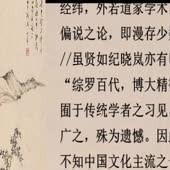 经纬，外若道家学术
偏说之论，即漫存少
//虽贤如纪晓岚亦有
“综罗百代，博大精
囿于传统学者之习见
广之，殊为遗憾。因
不知中国文化主流之